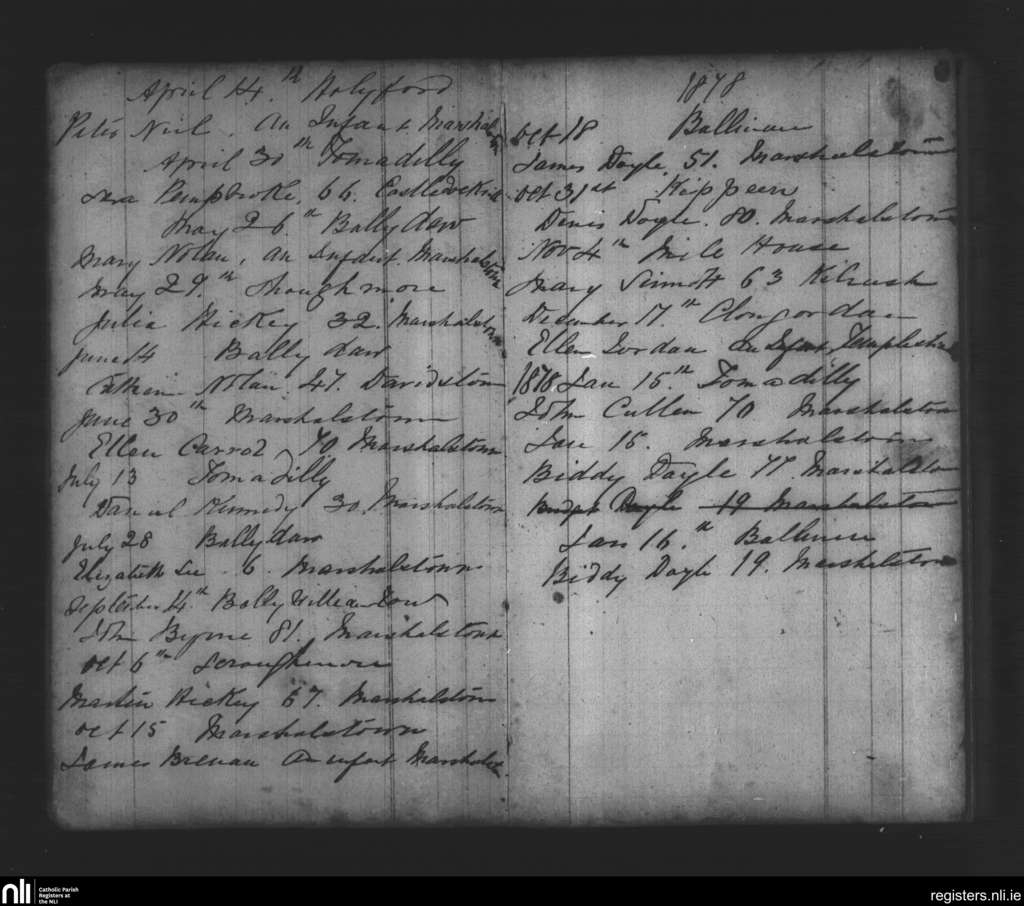 April 14.th Holyford
Peter Neil. An Infant Marshalstown
April 30th Tomadilly
Pembroke, 66. Castledockrill
May 26th Ballydaw
Mary Nolan, an Infant. Marshalstown
May 29.th
Julia Hickey 32. Marshalstown
June 14 Ballydaw
Nolan 47. Davidstown
June 30th Marshalstown
Ellen Carrol, 70 Marshalstown
July 13 Tomadilly
Daniel Kennedy 30. Marshalstown
July 28 Ballydaw
Elizabeth Lee 6. Marshalstown
September 14.th Ballywilliam
John Byrne 81. Marshalstown
Oct 6th
Martin Hickey 67. Marshalstown
Oct 15 Marshalstown
James Brenan An infant Marshalstown.
1878
Oct 18
James Doyle, 51. Marshalstown
Oct 31st Kippeen
Denis Doyle. 80. Marshalstown
Nov 4th Mile House
Mary Sinnott 63 Kilrush
December 17.th Clongordan
Ellen Jordan an Infant, Templeshanbo
1878 Jan 15th Tomadilly
John Cullen 70 Marshalstown
Jan 15. Marshalstown
Biddy Doyle 77. Marshalstown
Doyle 19 Marshalstown
Jan 16.th
Biddy Doyle 19. Marshalstown
nli Catholic Parish
Registers at
the NLI
registers.nli.ie